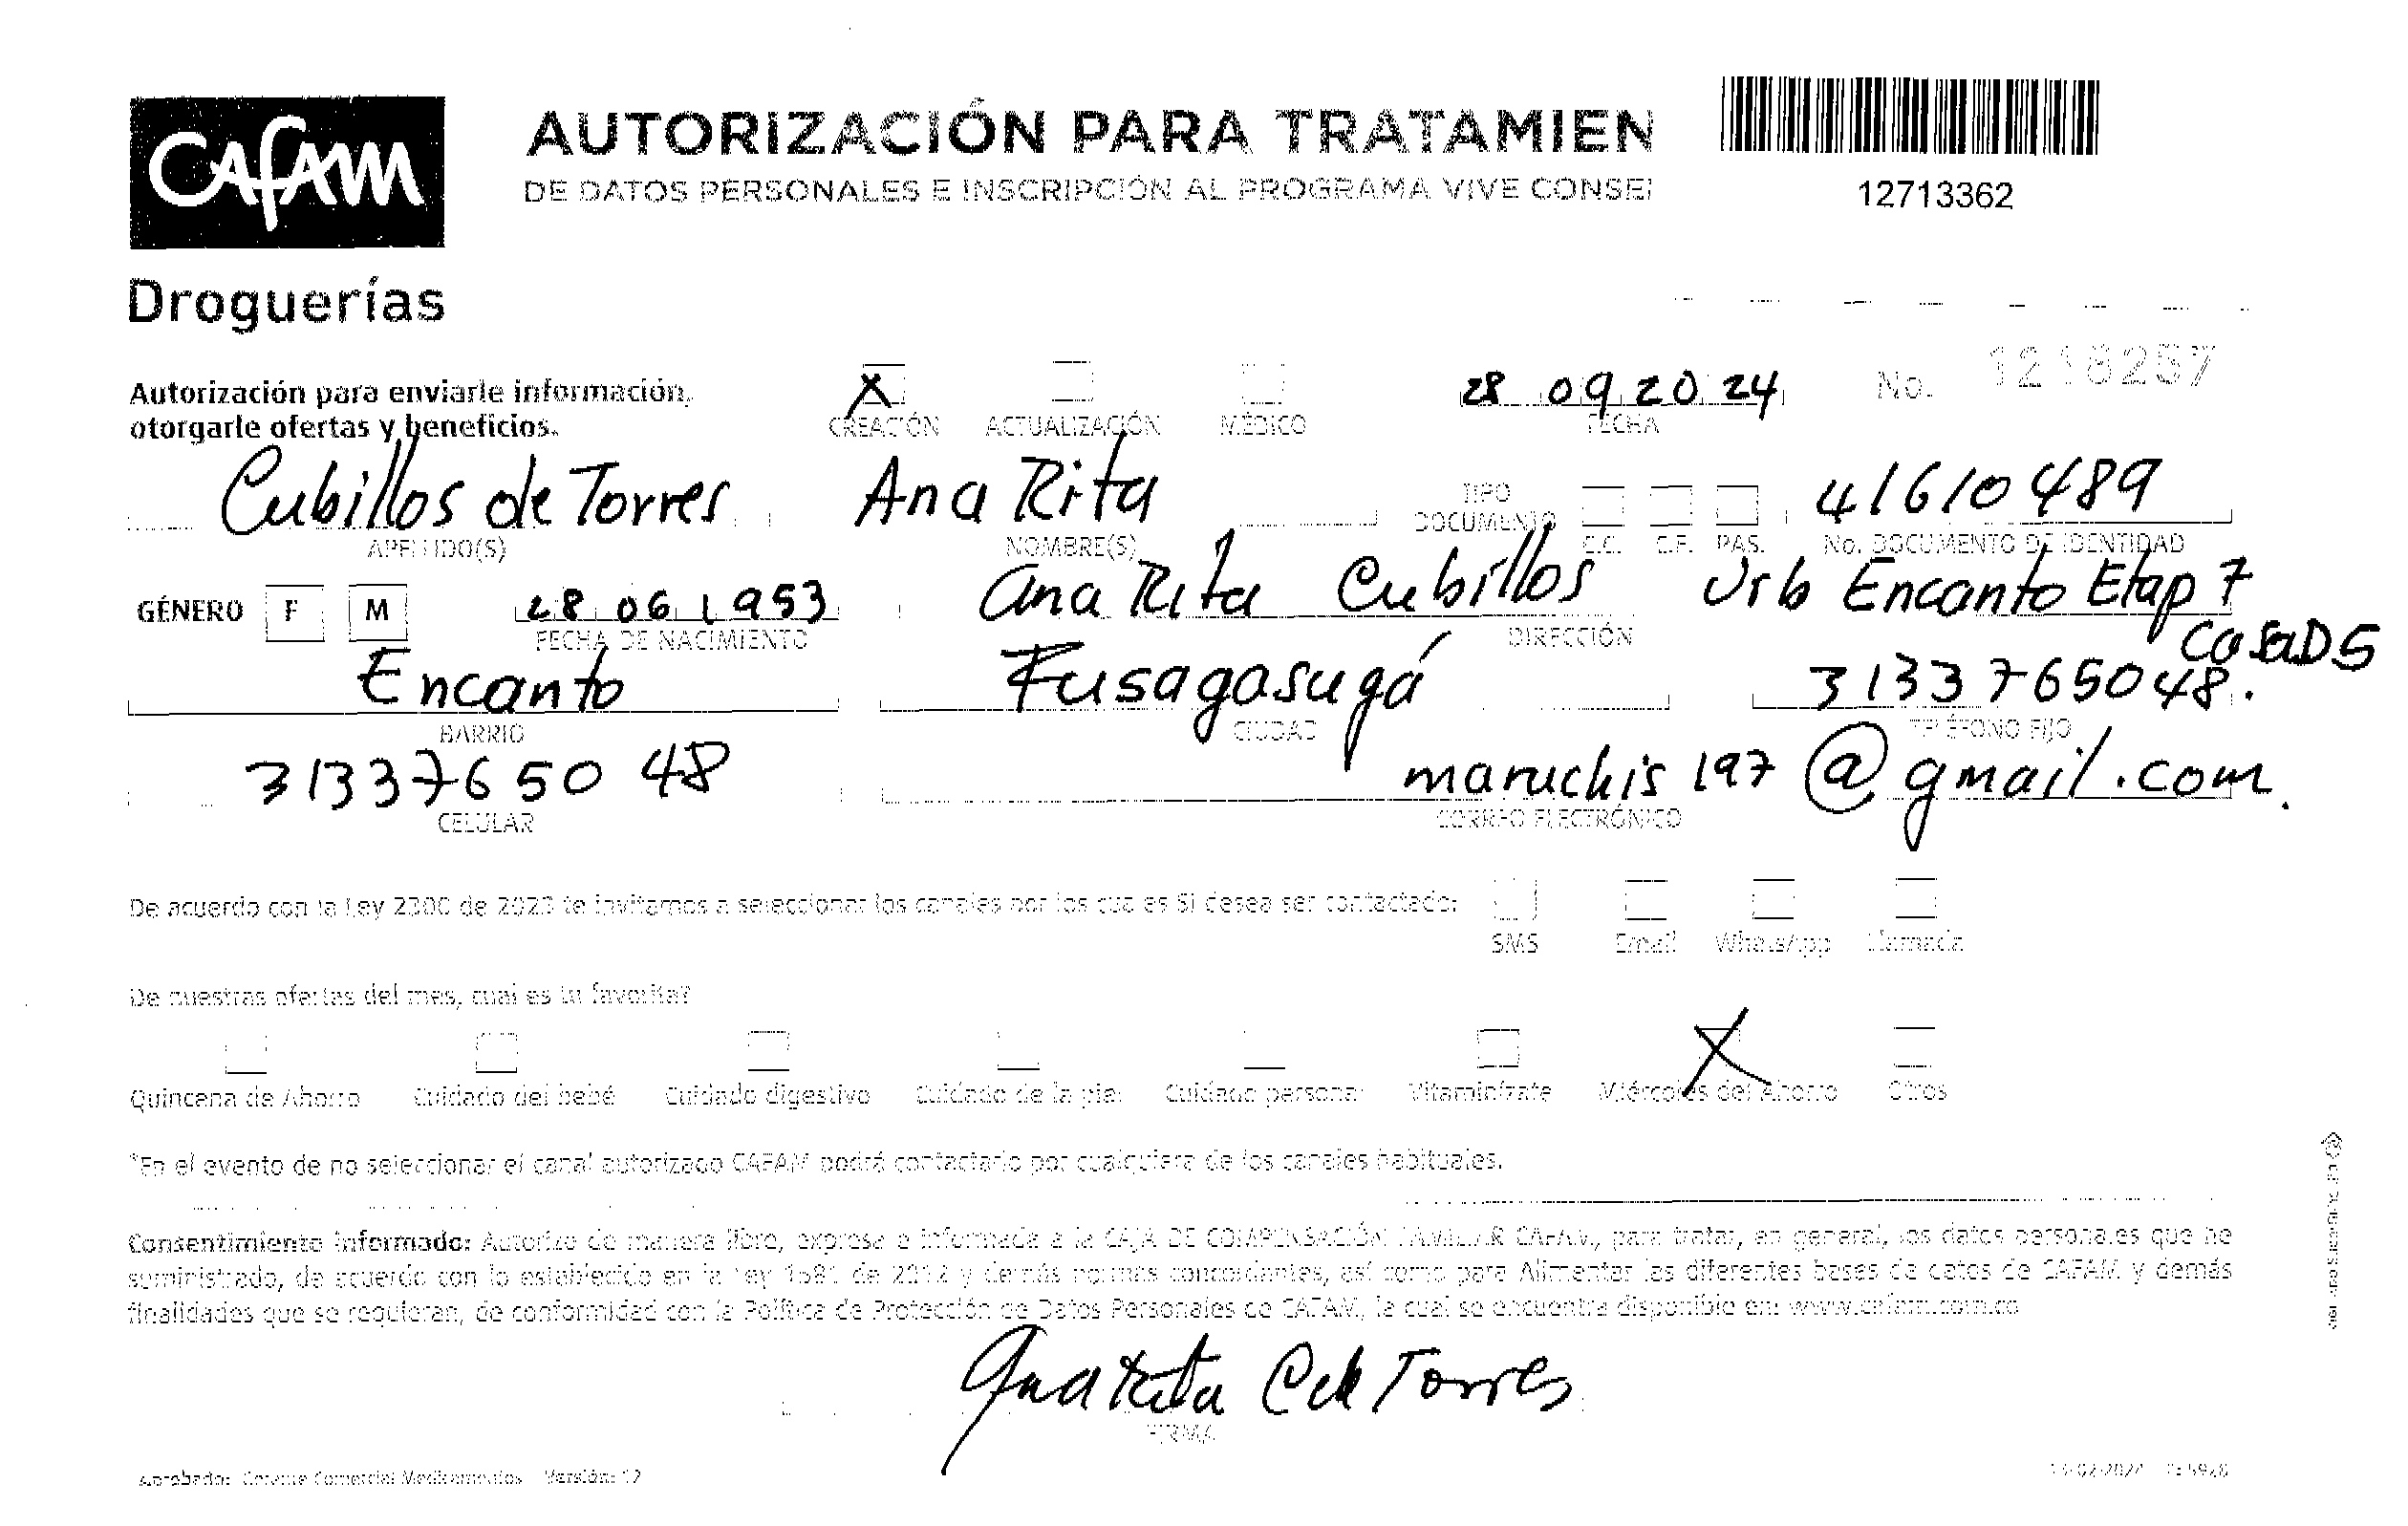 CAFAM
AUTORIZACIÓN PARA TRATAMIEN
DE DATOS PERSONALES E INSCRIPCIÓN AL PROGRAMA VIVE CONSE
12713362
Droguerías
Autorización para enviarle información,
otorgarle ofertas y beneficios.
X
CREACIÓN ACTUALIZACIÓN MÉDICO
28 09 2024
FECHA
No. 1218257
Cubillos de Torres Ana Rita
APELLIDO(S) NOMBRE(S)
TIPO DOCUMENTO C.C. C.E. PAS.
41610489
No. DOCUMENTO DE IDENTIDAD
GÉNERO F M 28 06 1953
FECHA DE NACIMIENTO
Ana Rita Cubillos Urb Encanto Etap 7
Casa D5
DIRECCIÓN
Encanto Fusagasugá 3133765048.
BARRIO CIUDAD TELÉFONO FIJO
3133765048 maruchis197@gmail.com.
CELULAR CORREO ELECTRÓNICO
De acuerdo con la Ley 2300 de 2023 te invitamos a seleccionar los canales por los cuales Si desea ser contactado:
SMS Email WhatsApp Llamada
De nuestras ofertas del mes, cual es tu favorita?
X
Quincena de Ahorro Cuidado del bebé Cuidado digestivo Cuidado de la piel Cuidado personal Vitaminízate Miércoles del Ahorro Otros
*En el evento de no seleccionar el canal autorizado CAFAM podrá contactarlo por cualquiera de los canales habituales.
Consentimiento Informado: Autorizo de manera libre, expresa e informada a la CAJA DE COMPENSACIÓN FAMILIAR CAFAM, para tratar, en general, los datos personales que he
suministrado, de acuerdo con lo establecido en la Ley 1581 de 2012 y demás normas concordantes, así como para Alimentar las diferentes bases de datos de CAFAM y demás
finalidades que se requieran, de conformidad con la Política de Protección de Datos Personales de CAFAM, la cual se encuentra disponible en: www.cafam.com.co
Ana Rita C de Torres
FIRMA
Aprobado: Gerente Comercial Medicamentos Versión: 12